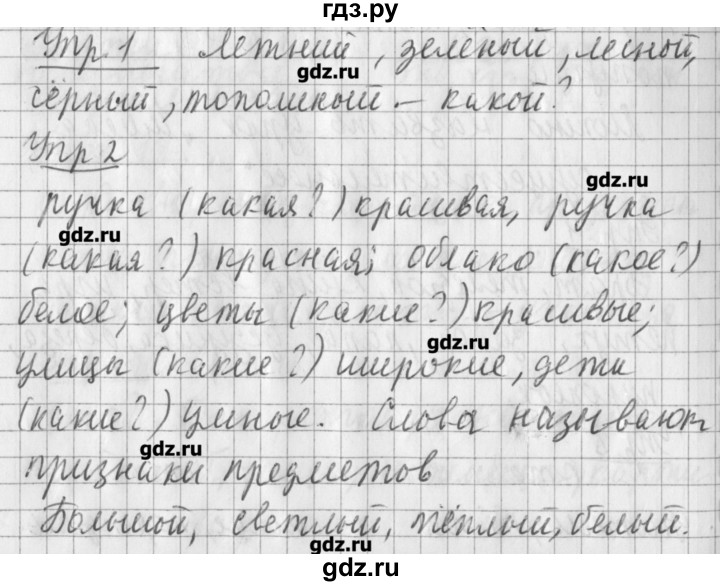 гдз.ру
Упр. 1 Летний, зелёный, лесной,
gdz.ru
чёрный, тополиный – какой?
Упр 2
gdz.ru
ручка (какая?) красивая, ручка
gdz.ru
(какая?) красная; облако (какое?)
белое; цветы (какие?) красивые;
gdz.ru
улицы (какие?) широкие, дети
(какие?) умные. Слова называют
gdz.ru
признаки предметов
Большой, светлый, тёплый, белый.
gdz.ru
gdz.ru